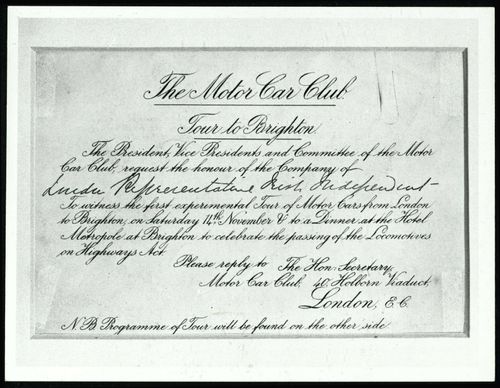 The Motor Car Club.
Tour to Brighton.
The President, Vice Presidents and Committee of the Motor
Car Club, request the honour of the Company of
London Representative Irish Independent
To witness the first experemental Tour of Motor Cars from London
to Brighton, on Saturday 14th November & to a Dinner at the Hotel
Metropole at Brighton to celebrate the passing of the Locomotives
on Highways Act.
Please reply to The Hon. Secretary,
Motor Car Club. 40, Holborn Viaduct,
London, E.C.
N.B. Programme of Tour will be found on the other side.